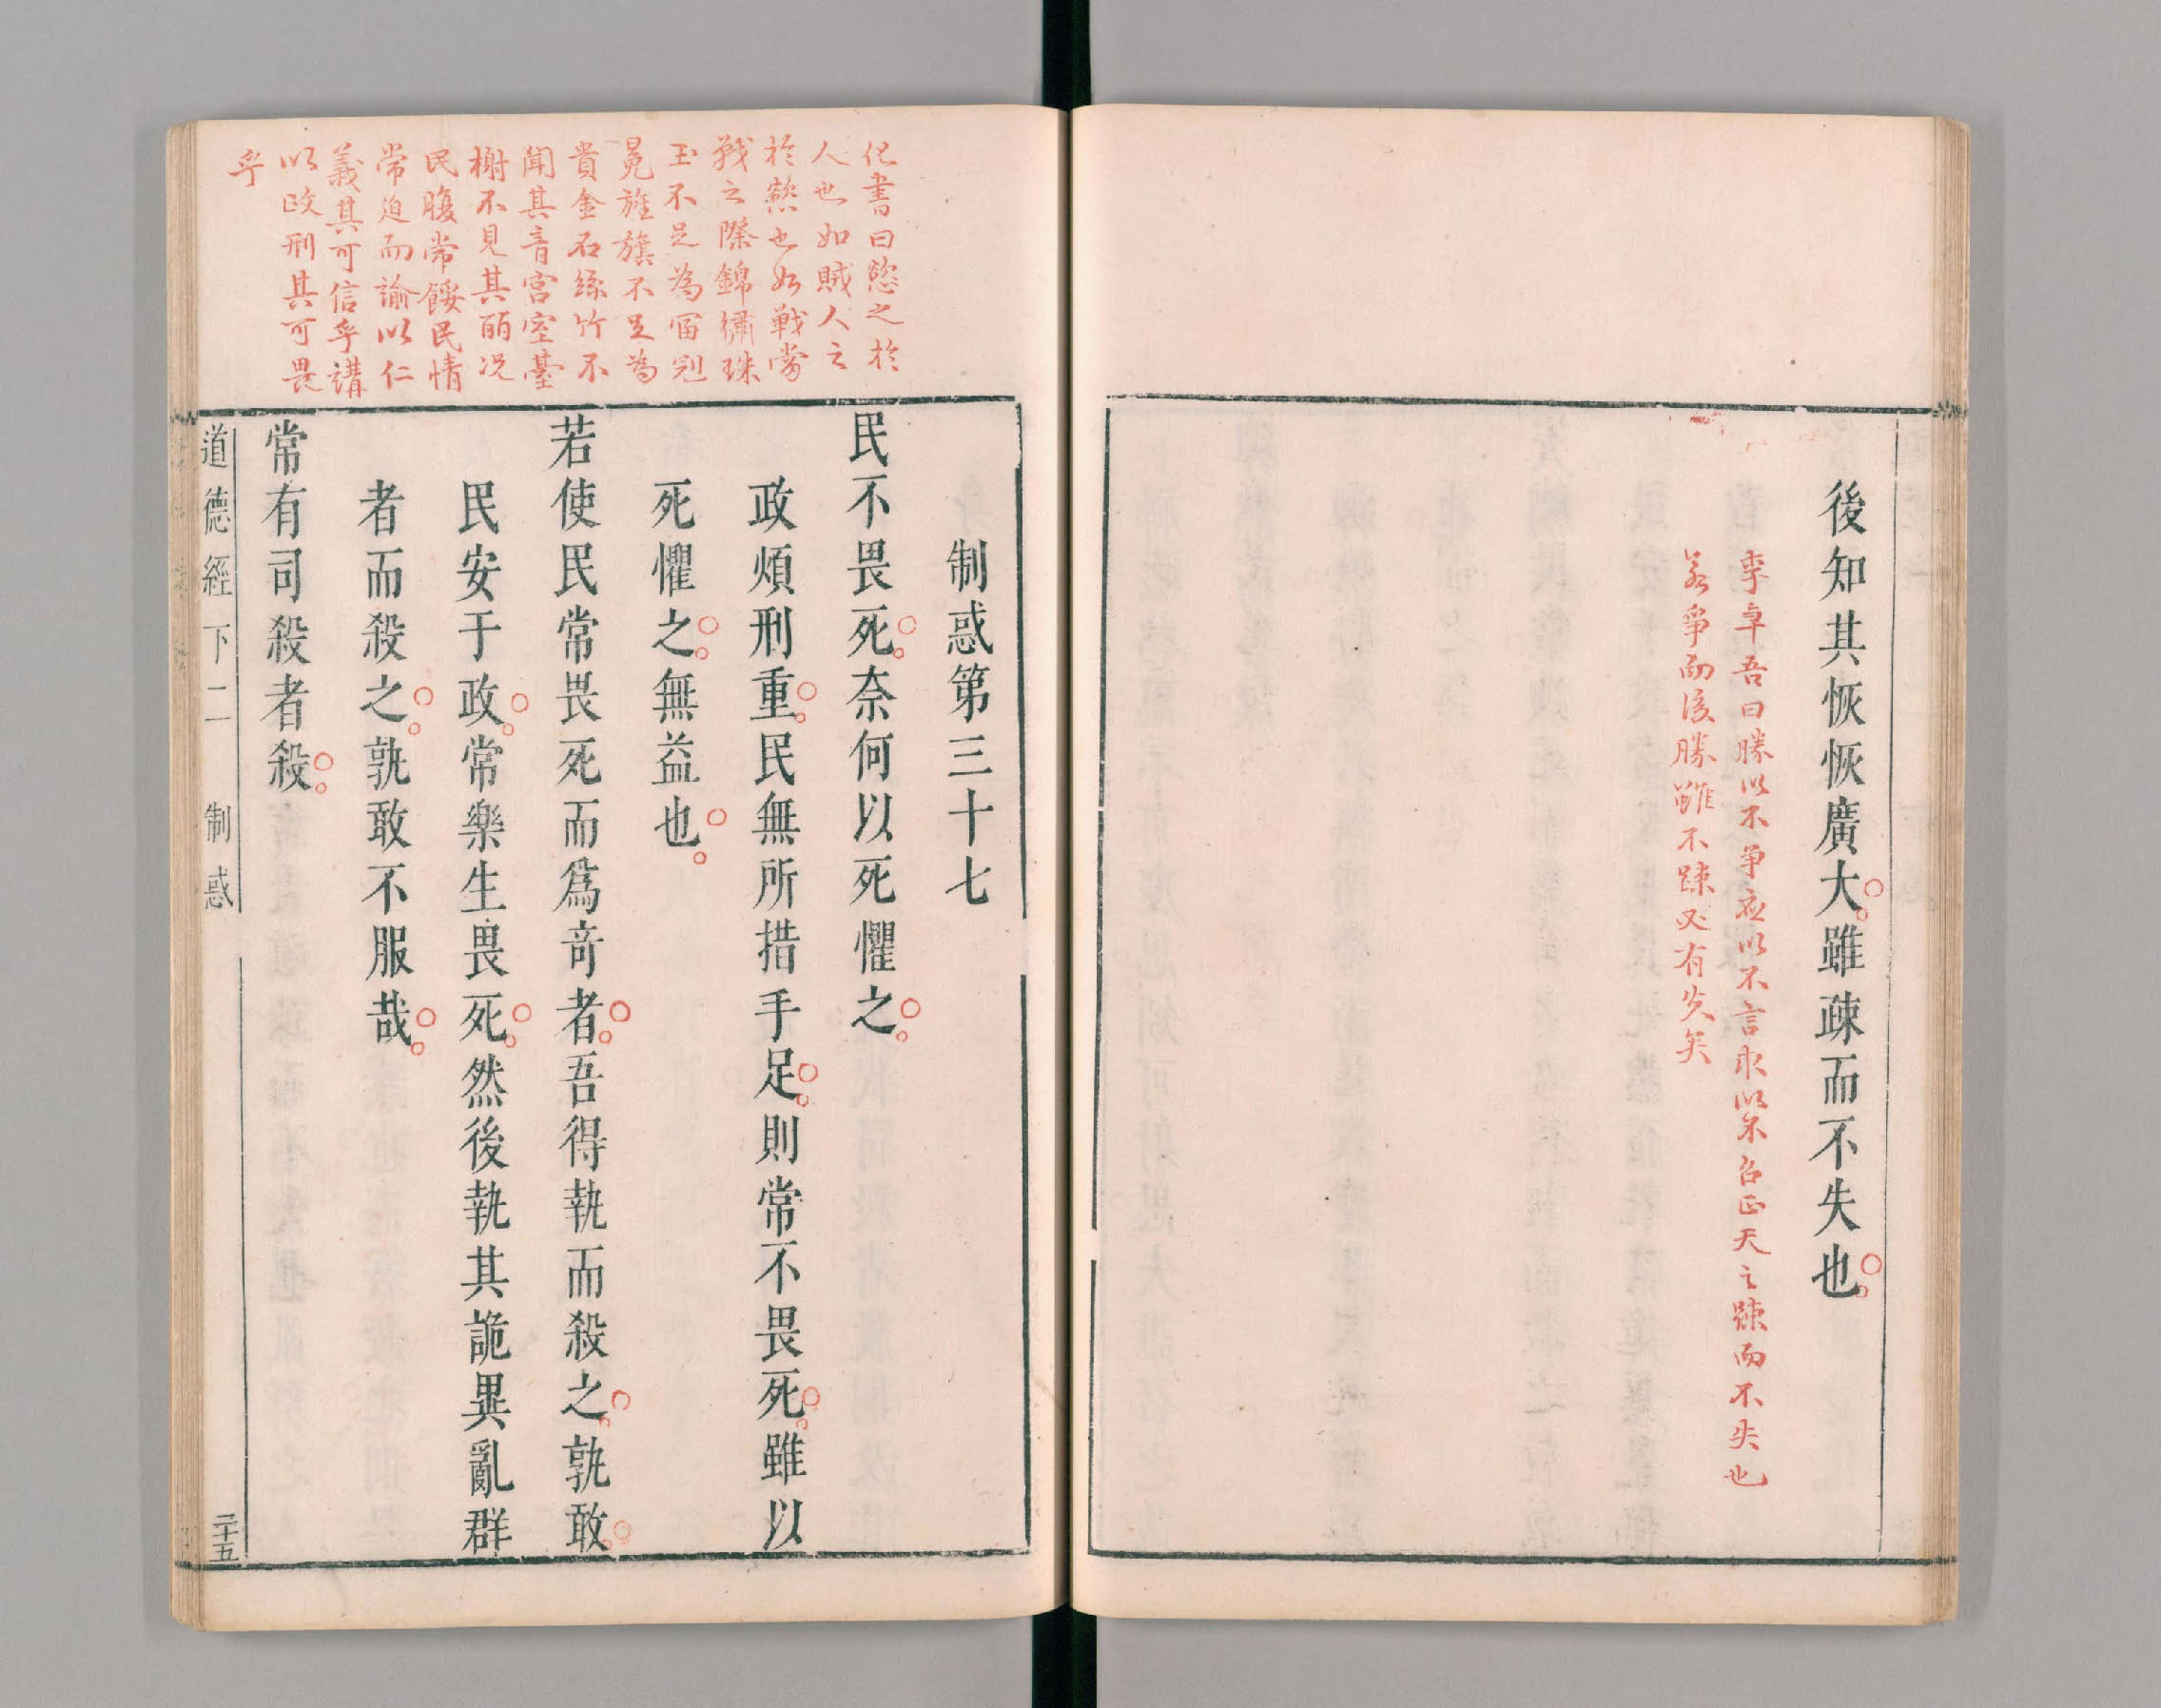 後知其恢恢廣大雖疎而不失也
李卓吾曰勝以不爭應以不言來以不召正天之踈而不失也
若爭而後勝雖不踈必有失矣
化書曰慾之於
人也如賊人之
於慾也如戰當
戰之際錦繡珠
玉不足為富冠
冕旌旗不足為
貴金石絲竹不
聞其音宮室臺
榭不見其麗况
民腹常餒民情
常迫而諭以仁
義其可信乎講
以政刑其可畏
乎
制惑第三十七
民不畏死奈何以死懼之
政煩刑重民無所措手足則常不畏死雖以
死懼之無益也
若使民常畏死而爲奇者吾得執而殺之孰敢
民安于政常樂生畏死然後執其詭異亂群
者而殺之孰敢不服哉
常有司殺者殺
道德經下二 制惑
二十五